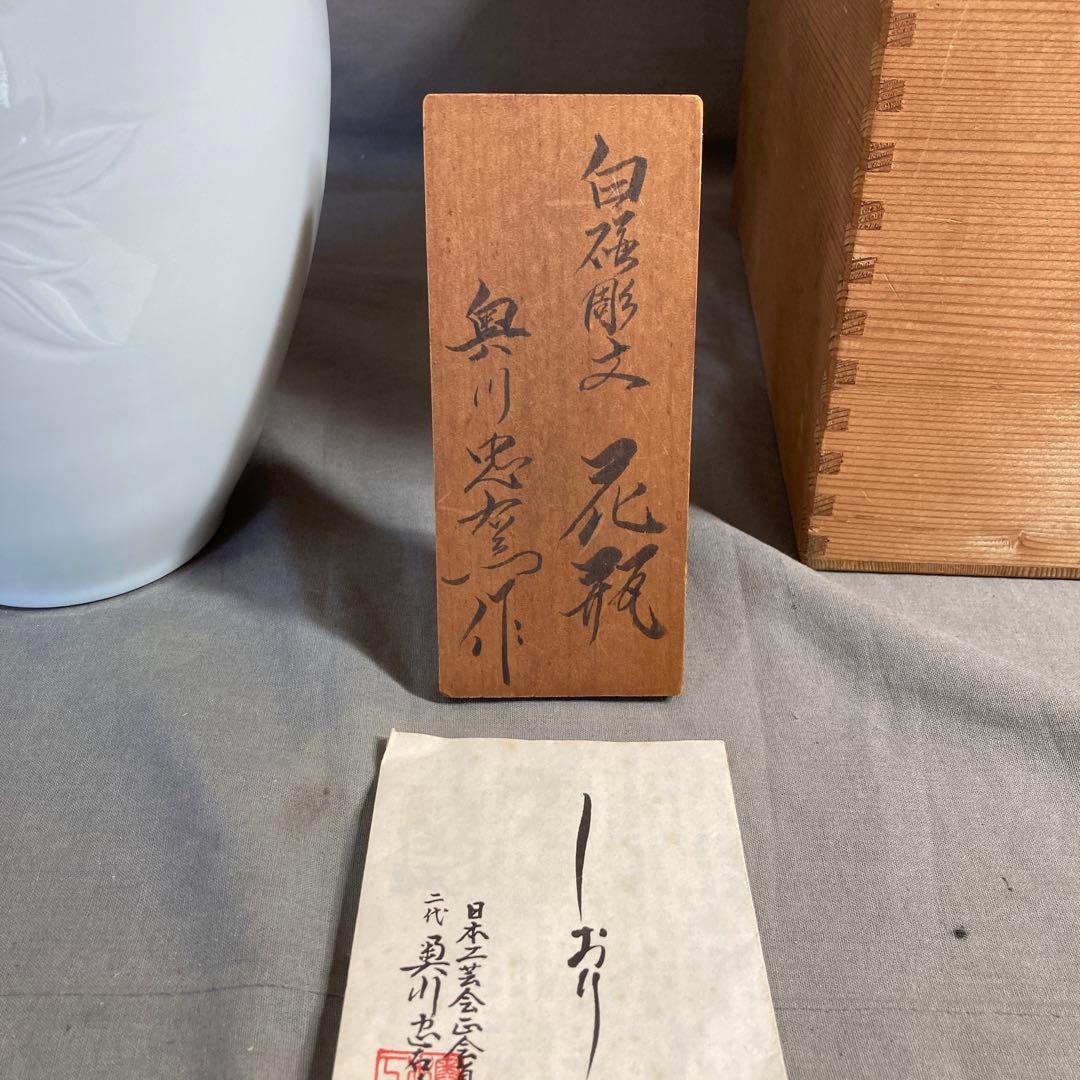 白磁彫文 花瓶
奥川忠右エ門作
しおり
日本工芸会正会員
二代 奥川忠右